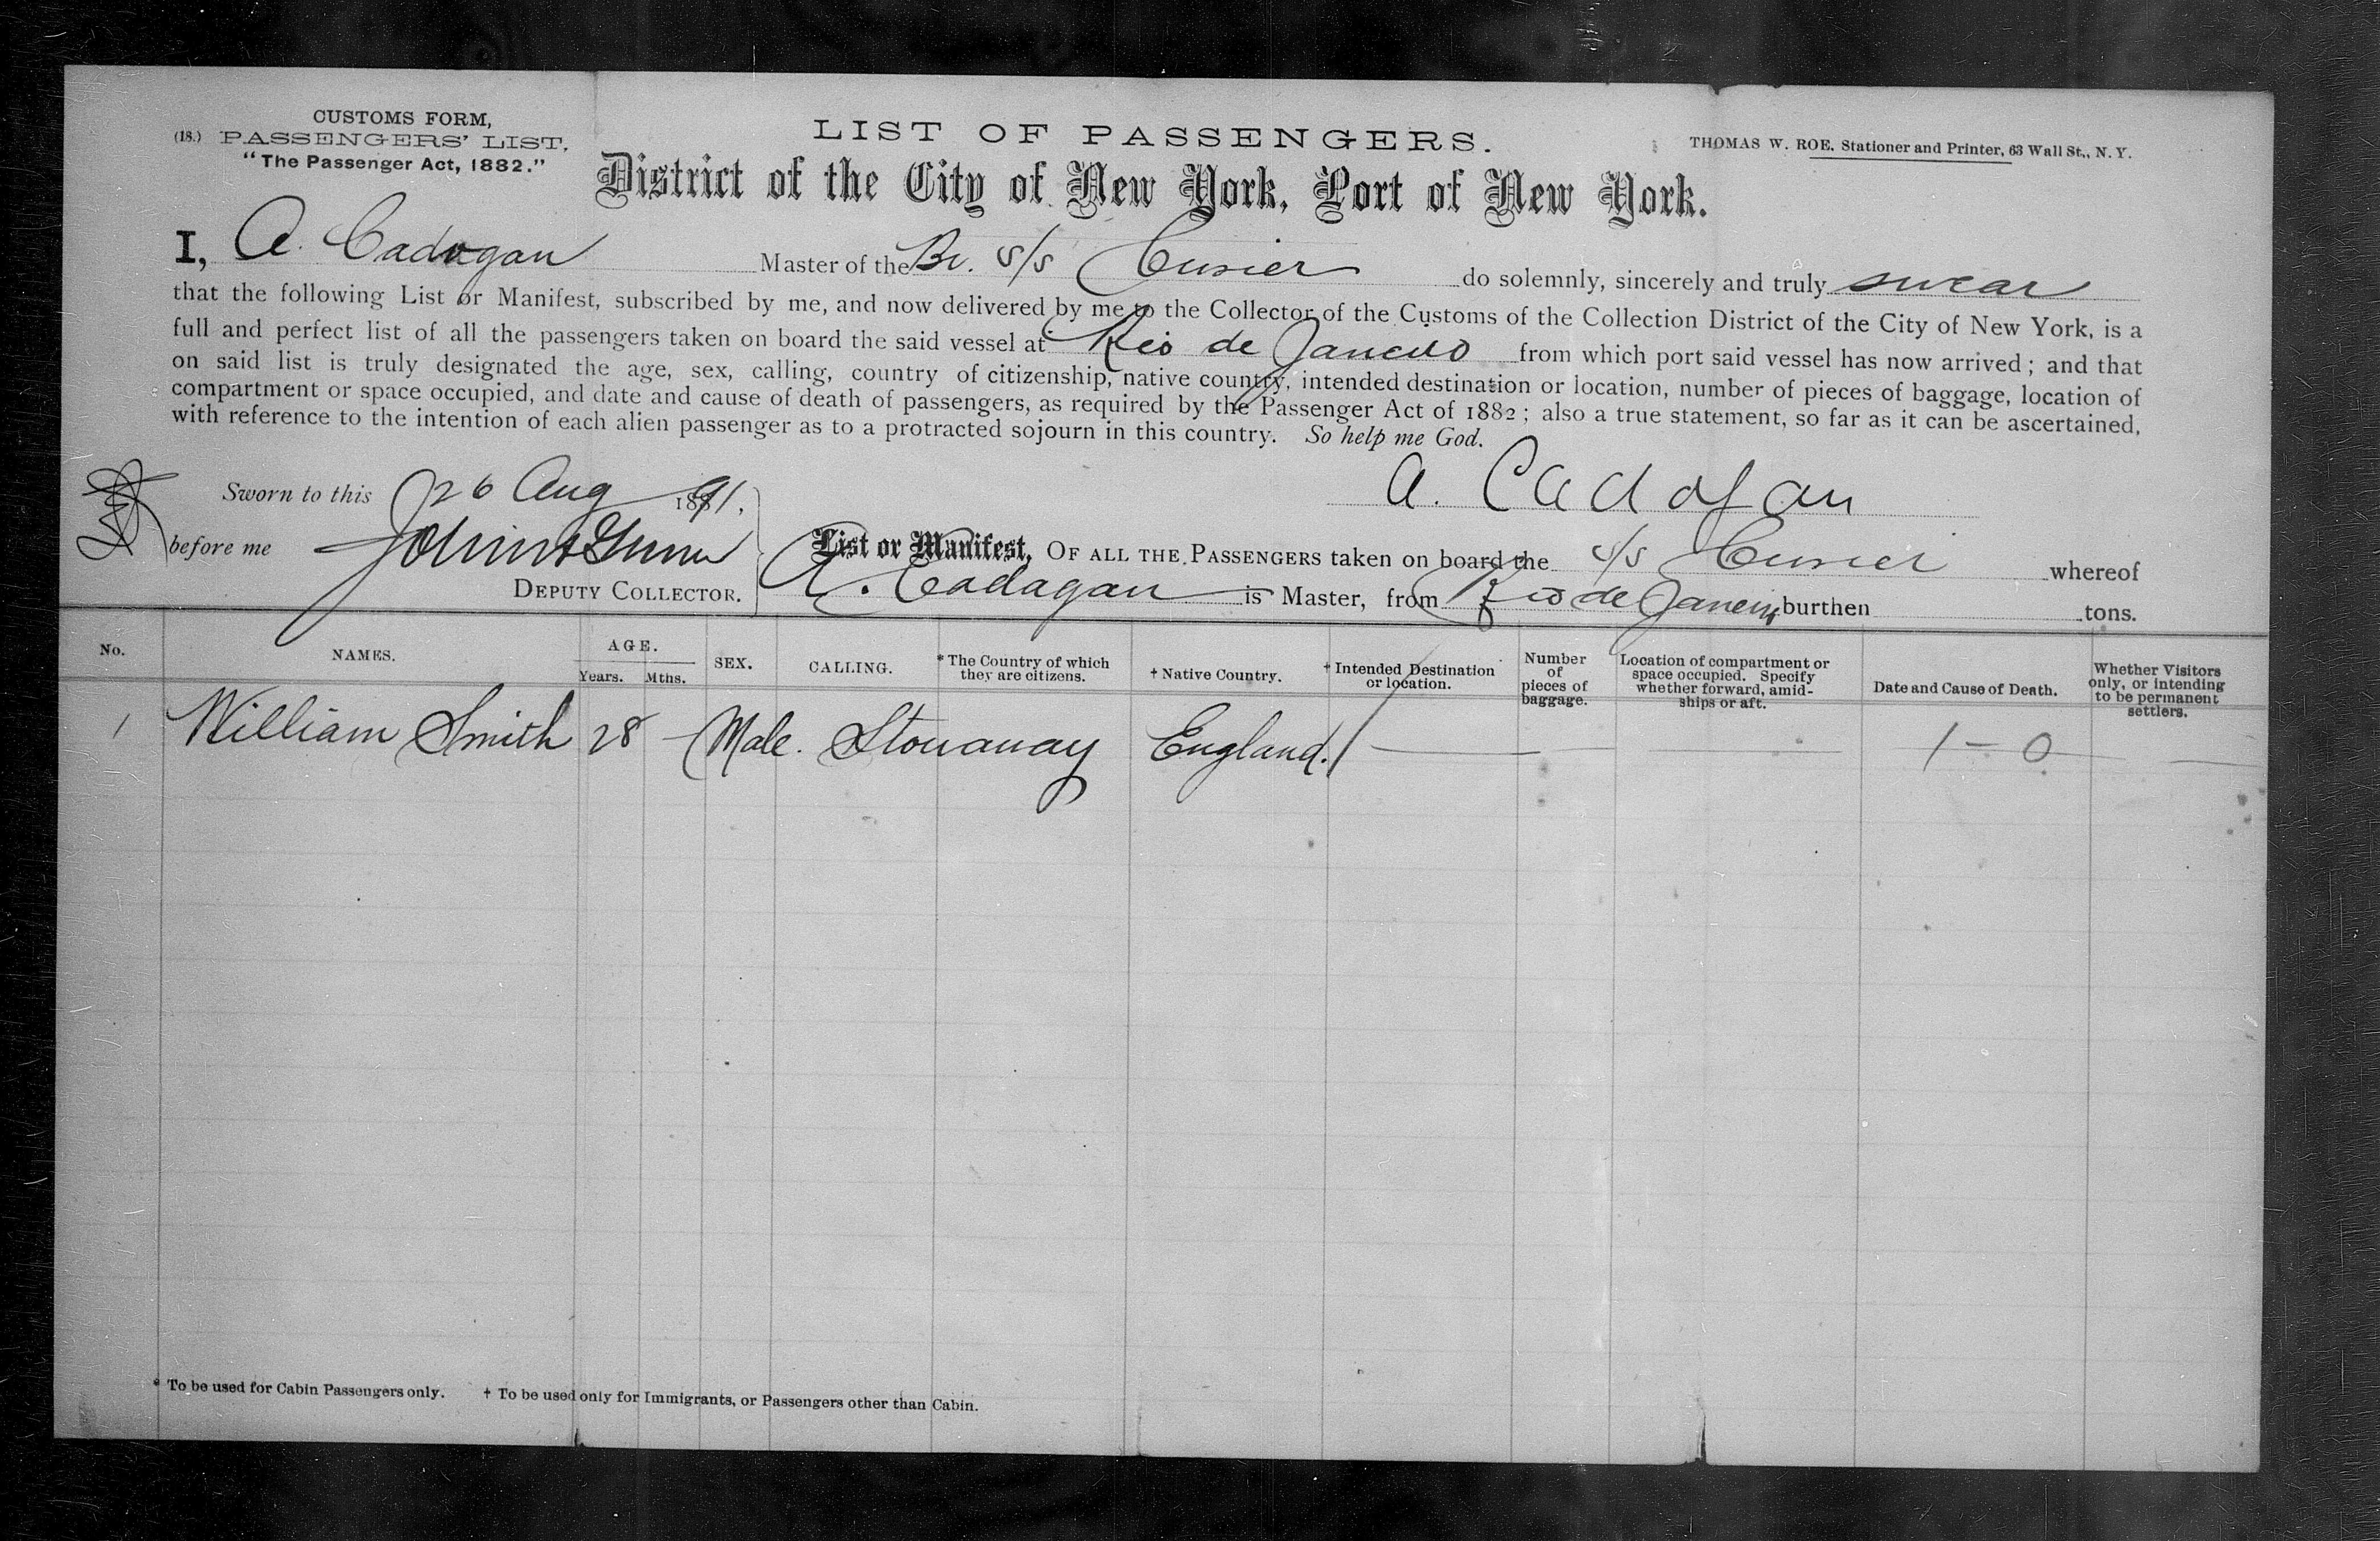 CUSTOMS FORM,
(18.) PASSENGERS' LIST,
"The Passenger Act, 1882."
LIST OF PASSENGERS.
THOMAS W. ROE, Stationer and Printer, 63 Wall St., N. Y.
District of the City of New York, Port of New York.
I, A. Cadogan Master of the Br. s/s Cuvier do solemnly, sincerely and truly swear
that the following List or Manifest, subscribed by me, and now delivered by me to the Collector of the Customs of the Collection District of the City of New York, is a
full and perfect list of all the passengers taken on board the said vessel at Rio de Janeiro from which port said vessel has now arrived; and that
on said list is truly designated the age, sex, calling, country of citizenship, native country, intended destination or location, number of pieces of baggage, location of
compartment or space occupied, and date and cause of death of passengers, as required by the Passenger Act of 1882; also a true statement, so far as it can be ascertained,
with reference to the intention of each alien passenger as to a protracted sojourn in this country. So help me God.
A. Cadogan
Sworn to this 26 Aug 1891,
before me
DEPUTY COLLECTOR.
List or Manifest, OF ALL THE PASSENGERS taken on board the s/s Cuvier whereof
A. Cadagan is Master, from Rio de Janeiro burthen tons.
No. NAMES. AGE. Years. Mths. SEX. CALLING. * The Country of which they are citizens. † Native Country. † Intended Destination or location. Number of pieces of baggage. Location of compartment or space occupied. Specify whether forward, amidships or aft. Date and Cause of Death. Whether Visitors only, or intending to be permanent settlers.
1 William Smith 28 — Male. Stowaway England. / — — — 1 – 0 —
* To be used for Cabin Passengers only. † To be used only for Immigrants, or Passengers other than Cabin.